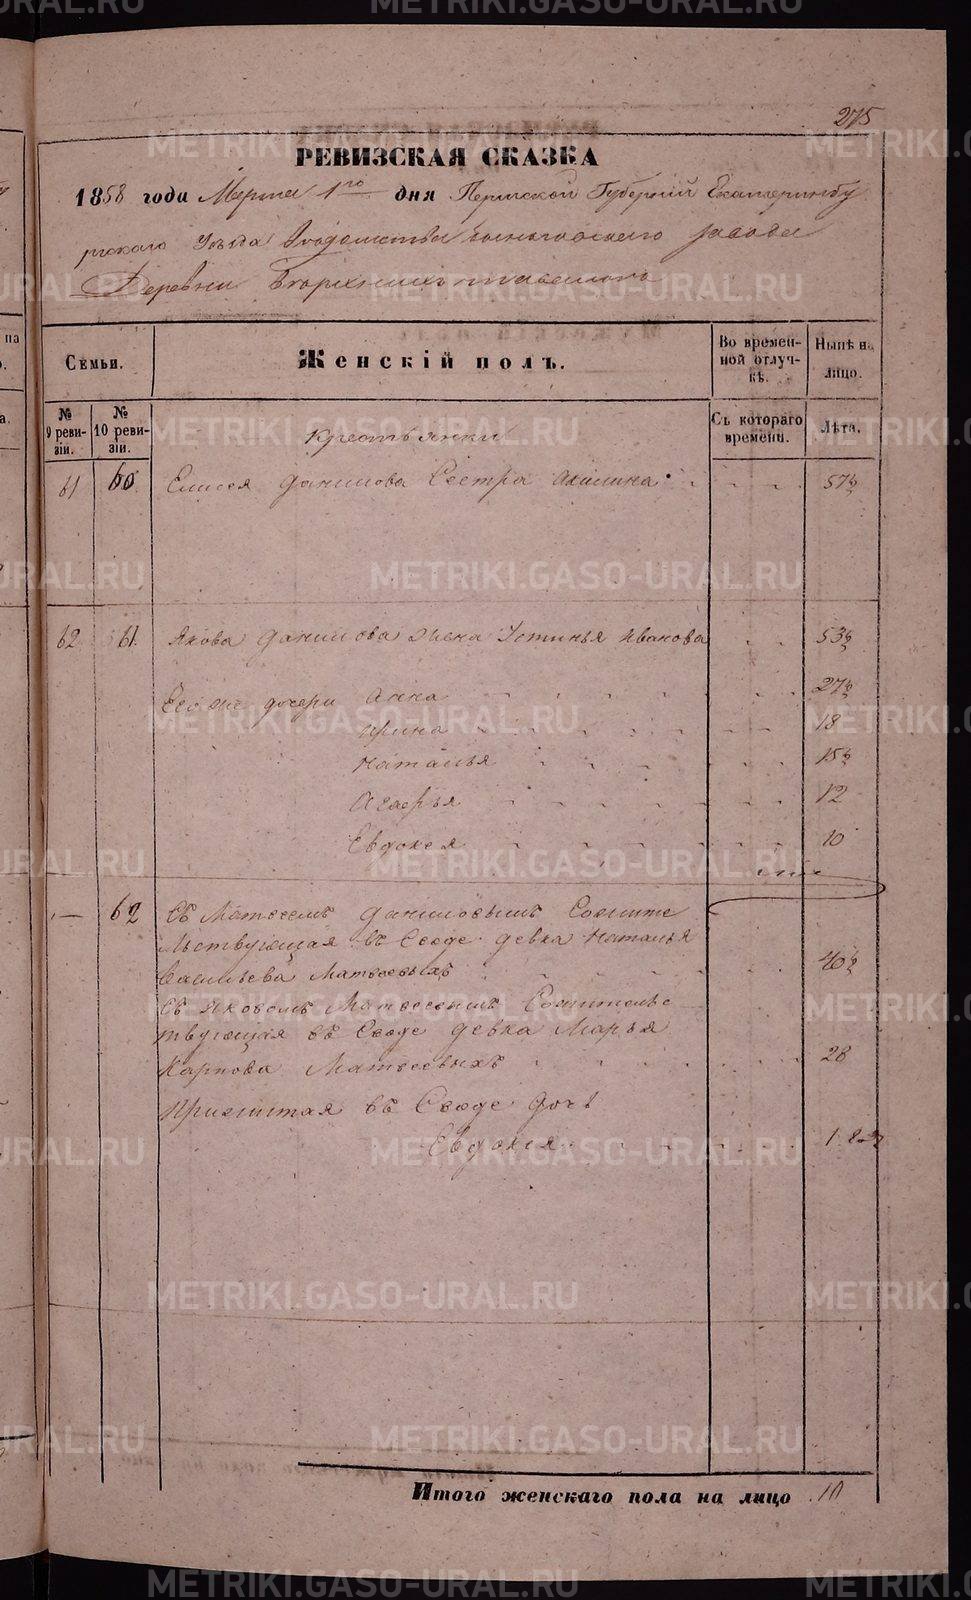 275
РЕВИЗСКАЯ СКАЗКА
1858 года Марта 1го дня Пермской Губерніи Екатеринбу
ргскаго Уезда завода
Деревни
Семьи.
Женскій полъ.
Во времен-
ной отлуч-
кѣ.
Нынѣ на
лицо.
№
9 реви-
зіи.
№
10 реви-
зіи.
Крестьянки
Съ котораго
времени.
Лѣта.
61 60 Елисея Данилова Сестра Акилина 57½
62 61 Якова Данилова жена Устинья Иванова 53½
Его же дочери Анна 27½
Ирина 18
Наталья 15½
Агафья 12
Евдокея 10
— 62 Съ Матвеемъ Даниловымъ Сожите
льствующая въ Сводѣ девка Наталья
Васильева Матвеевыхъ 40½
Съ Яковомъ Матвеевымъ Сожительс
твующая въ Сводѣ девка Марья
Карпова Матвеевыхъ 28
Прижитая въ Сводѣ дочь
Евдокея 1
Итого женскаго пола на лицо 10
METRIKI.GASO-URAL.RU